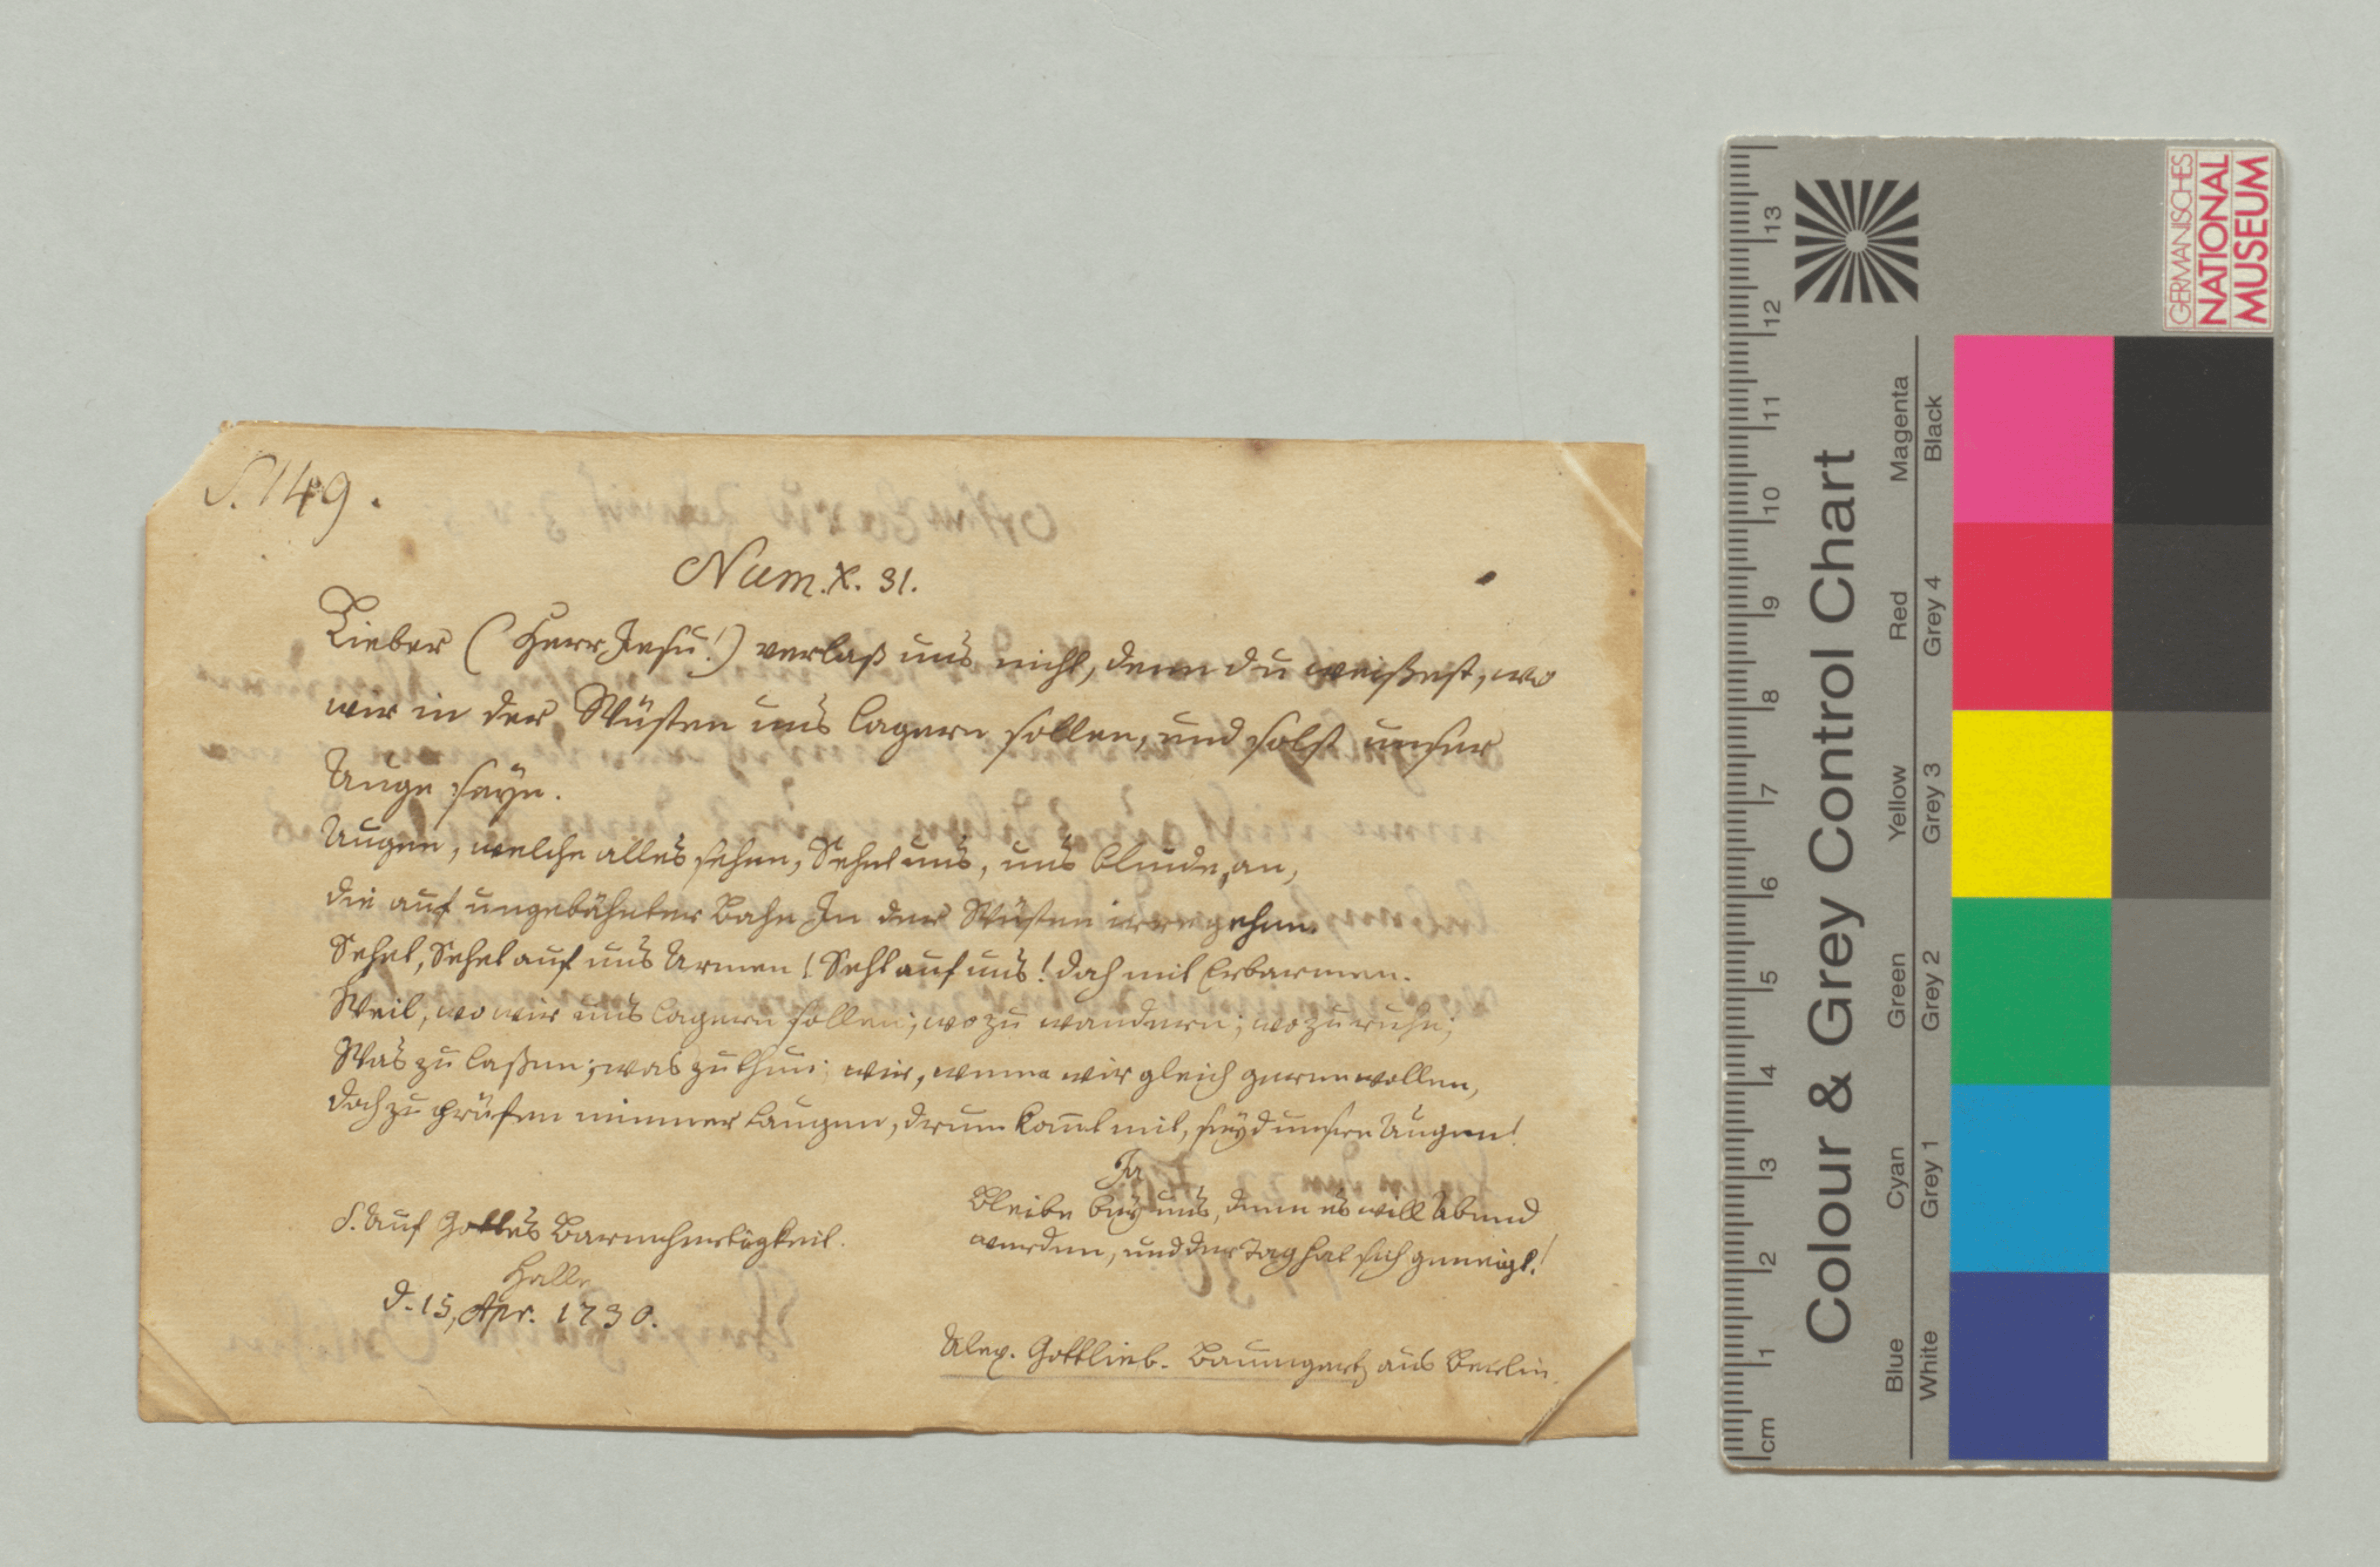 S. 149.
Num. X. 31.
Lieber (Herr Jesu!) verlaß uns nicht, denn du weißest, wo
wir in der Wüsten uns lagern sollen, und solst unser
Auge seyn.
Augen, welche alles sehen, Sehet uns, uns blinde, an,
die auf ungebähnter Bahn In der Wüsten irre gehen.
Sehet, Sehet auf uns Armen! Seht auf uns! doch mit Erbarmen.
Weil, wo wir uns lagern sollen; wo zu wandern; wo zu ruhn;
Was zu laßen; was zu thun; wir, wenn wir gleich gerne wollen,
doch zu prüfen nimmer taugen, drum kom̄t mit, seyd unsre Augen!
Ja
Bleibe bey uns, denn es will Abend
werden, und der Tag hat sich geneigt!
S. Auf Gottes Barmhertzigkeit.
Halle
d. 15, Apr. 1730.
Alex. Gottlieb. Baumgart, aus Berlin.
GERMANISCHES
NATIONAL
MUSEUM
Colour & Grey Control Chart
Blue Cyan Green Yellow Red Magenta
White Grey 1 Grey 2 Grey 3 Grey 4 Black
cm 1 2 3 4 5 6 7 8 9 10 11 12 13